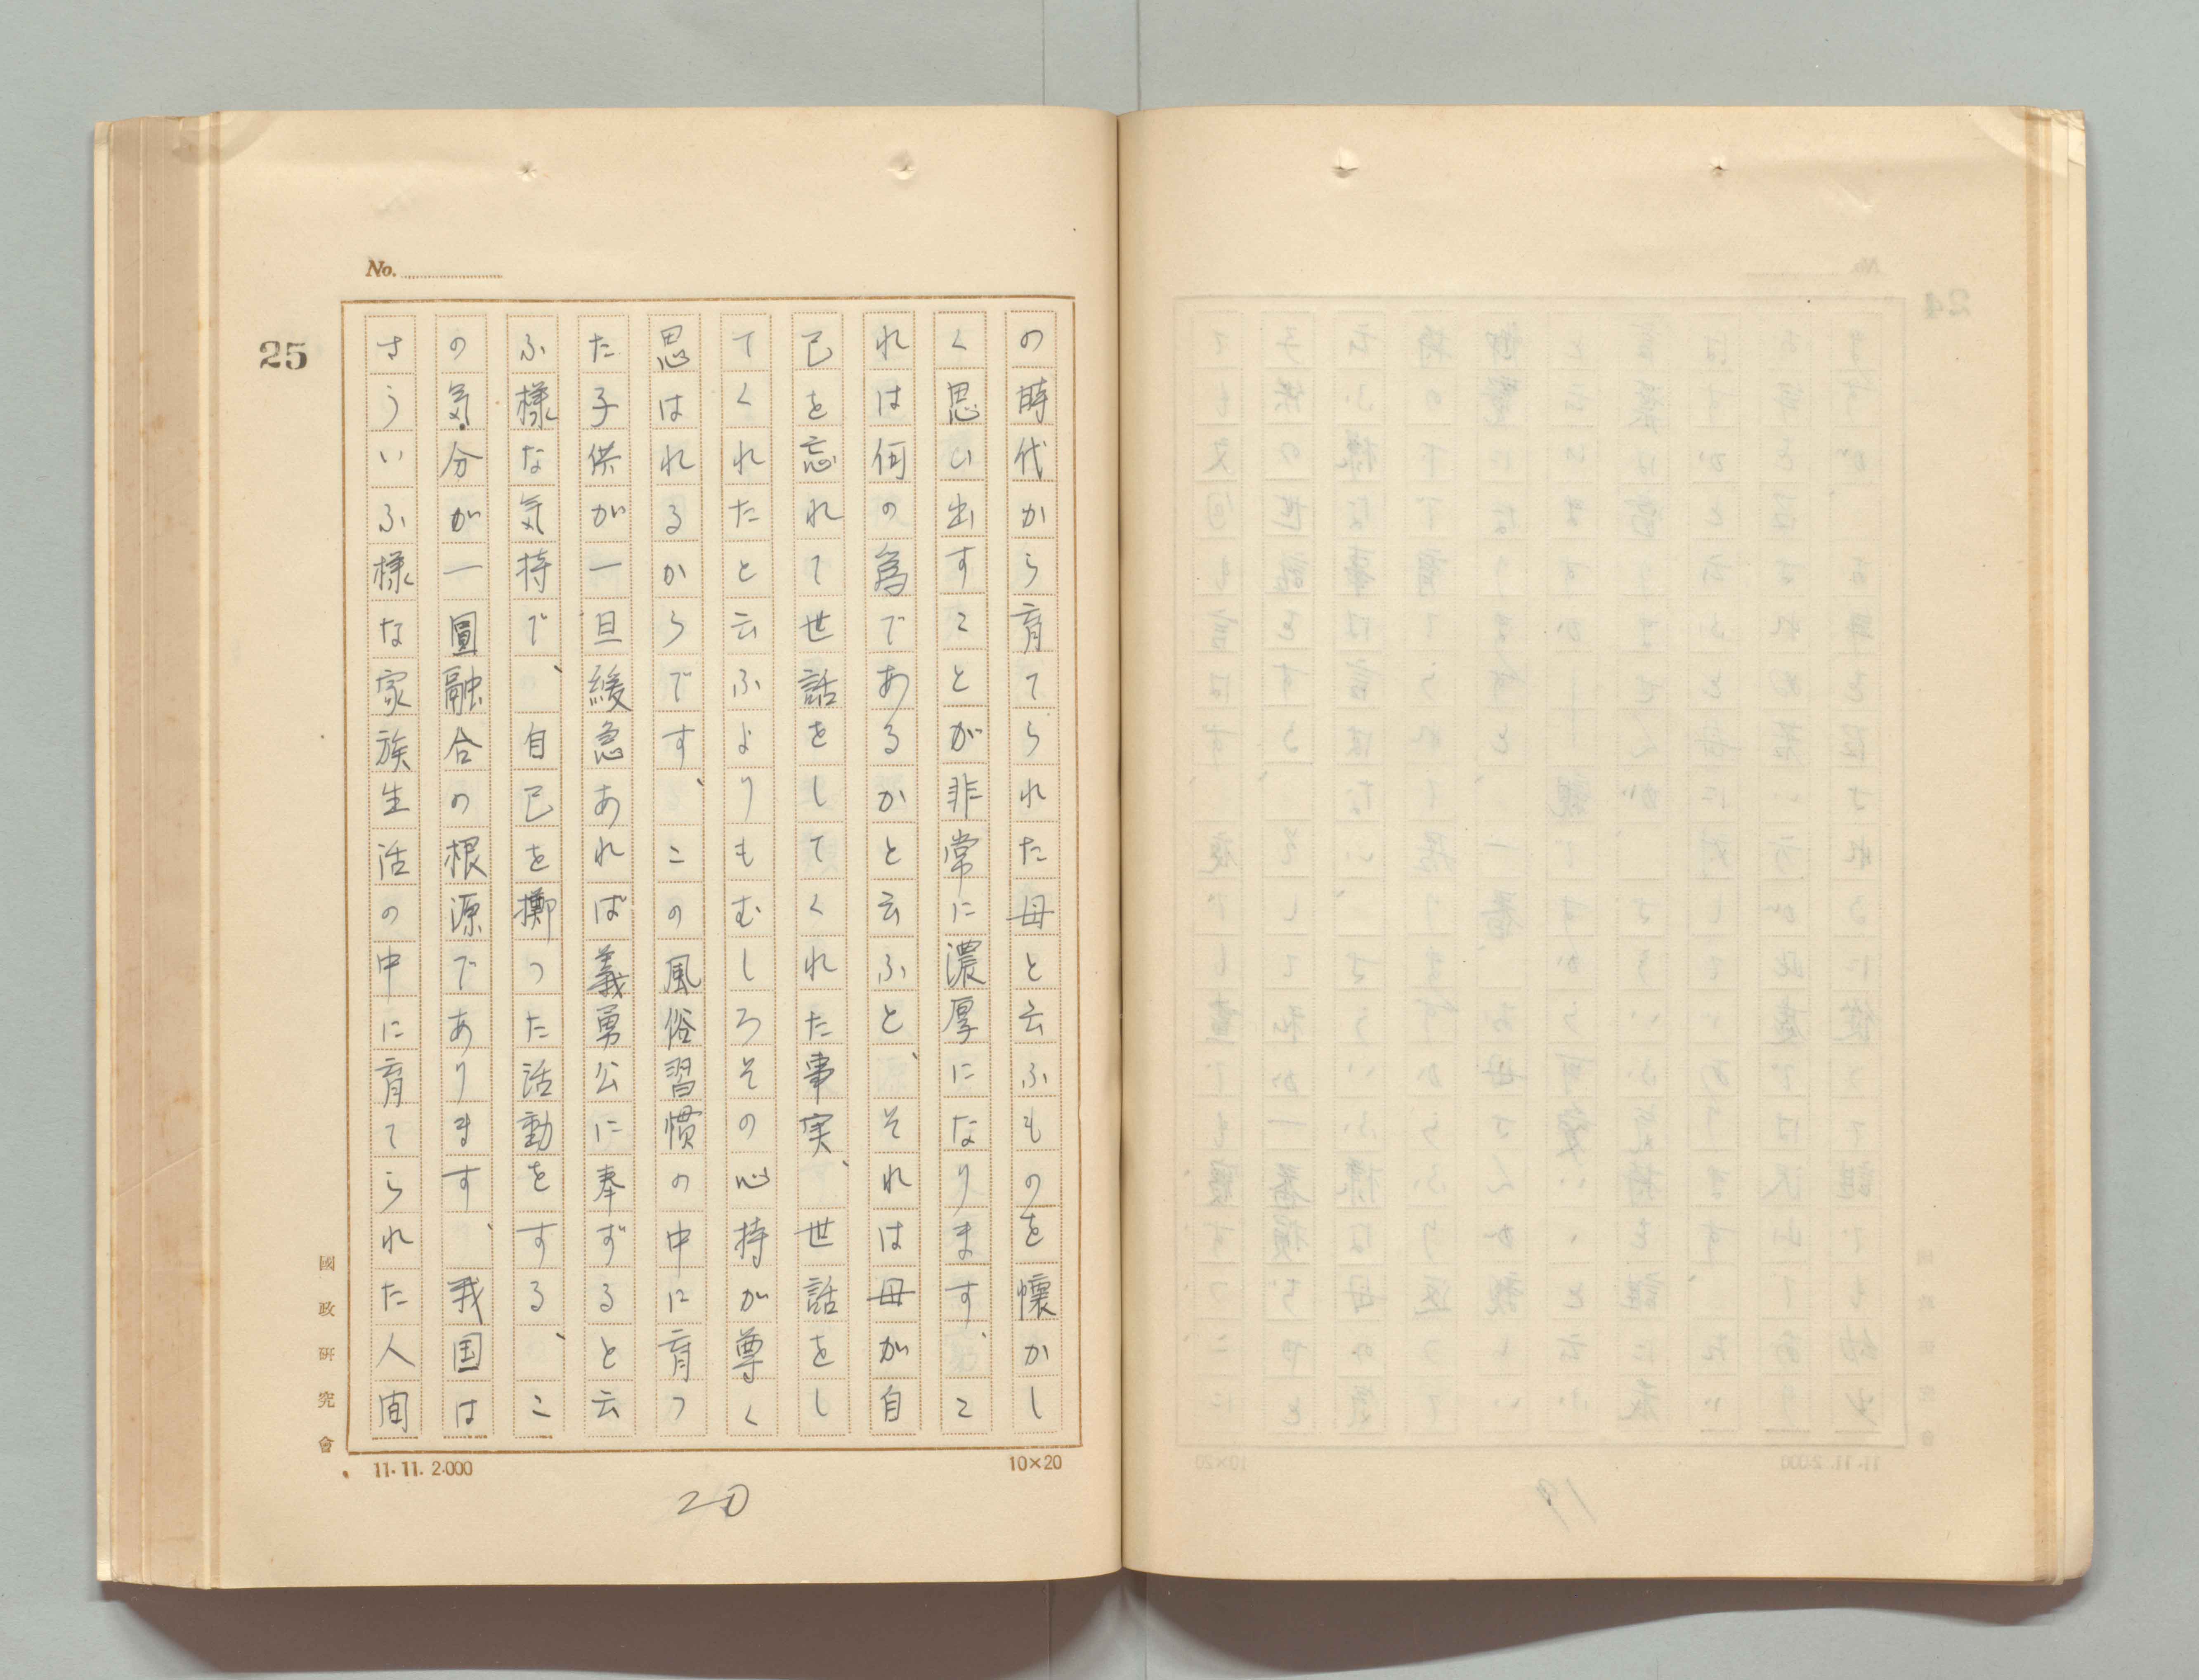 No.
25
の時代から育てられた母と云ふものを懐かし
く思ひ出すことが非常に濃厚になります、こ
れは何の為であるかと云ふと、それは母が自
己を忘れて世話をしてくれた事実、世話をし
てくれたと云ふよりもむしろその心持が尊く
思はれるからです、この風俗習慣の中に育つ
た子供が一旦緩急あれば義勇公に奉ずると云
ふ様な気持で、自己を擲つた活動をする、こ
の気分が一圓融合の根源であります、我国は
さういふ様な家族生活の中に育てられた人間
國政研究會
11.11.2.000
10×20
20